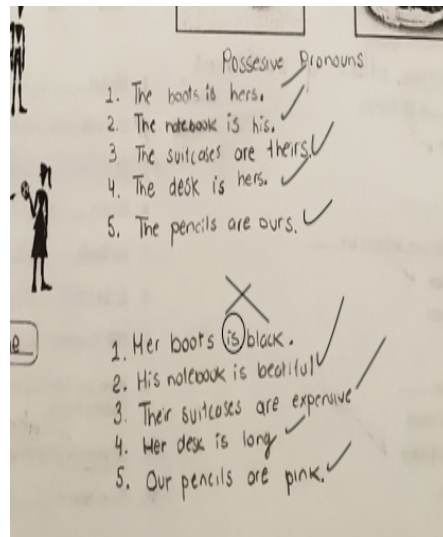 Possesive Pronouns
1. The boots is hers.
2. The notebook is his.
3. The suitcases are theirs.
4. The desk is hers.
5. The pencils are ours.
e
1. Her boots is black.
2. His notebook is beatiful
3. Their suitcases are expensive
4. Her desk is long
5. Our pencils are pink.